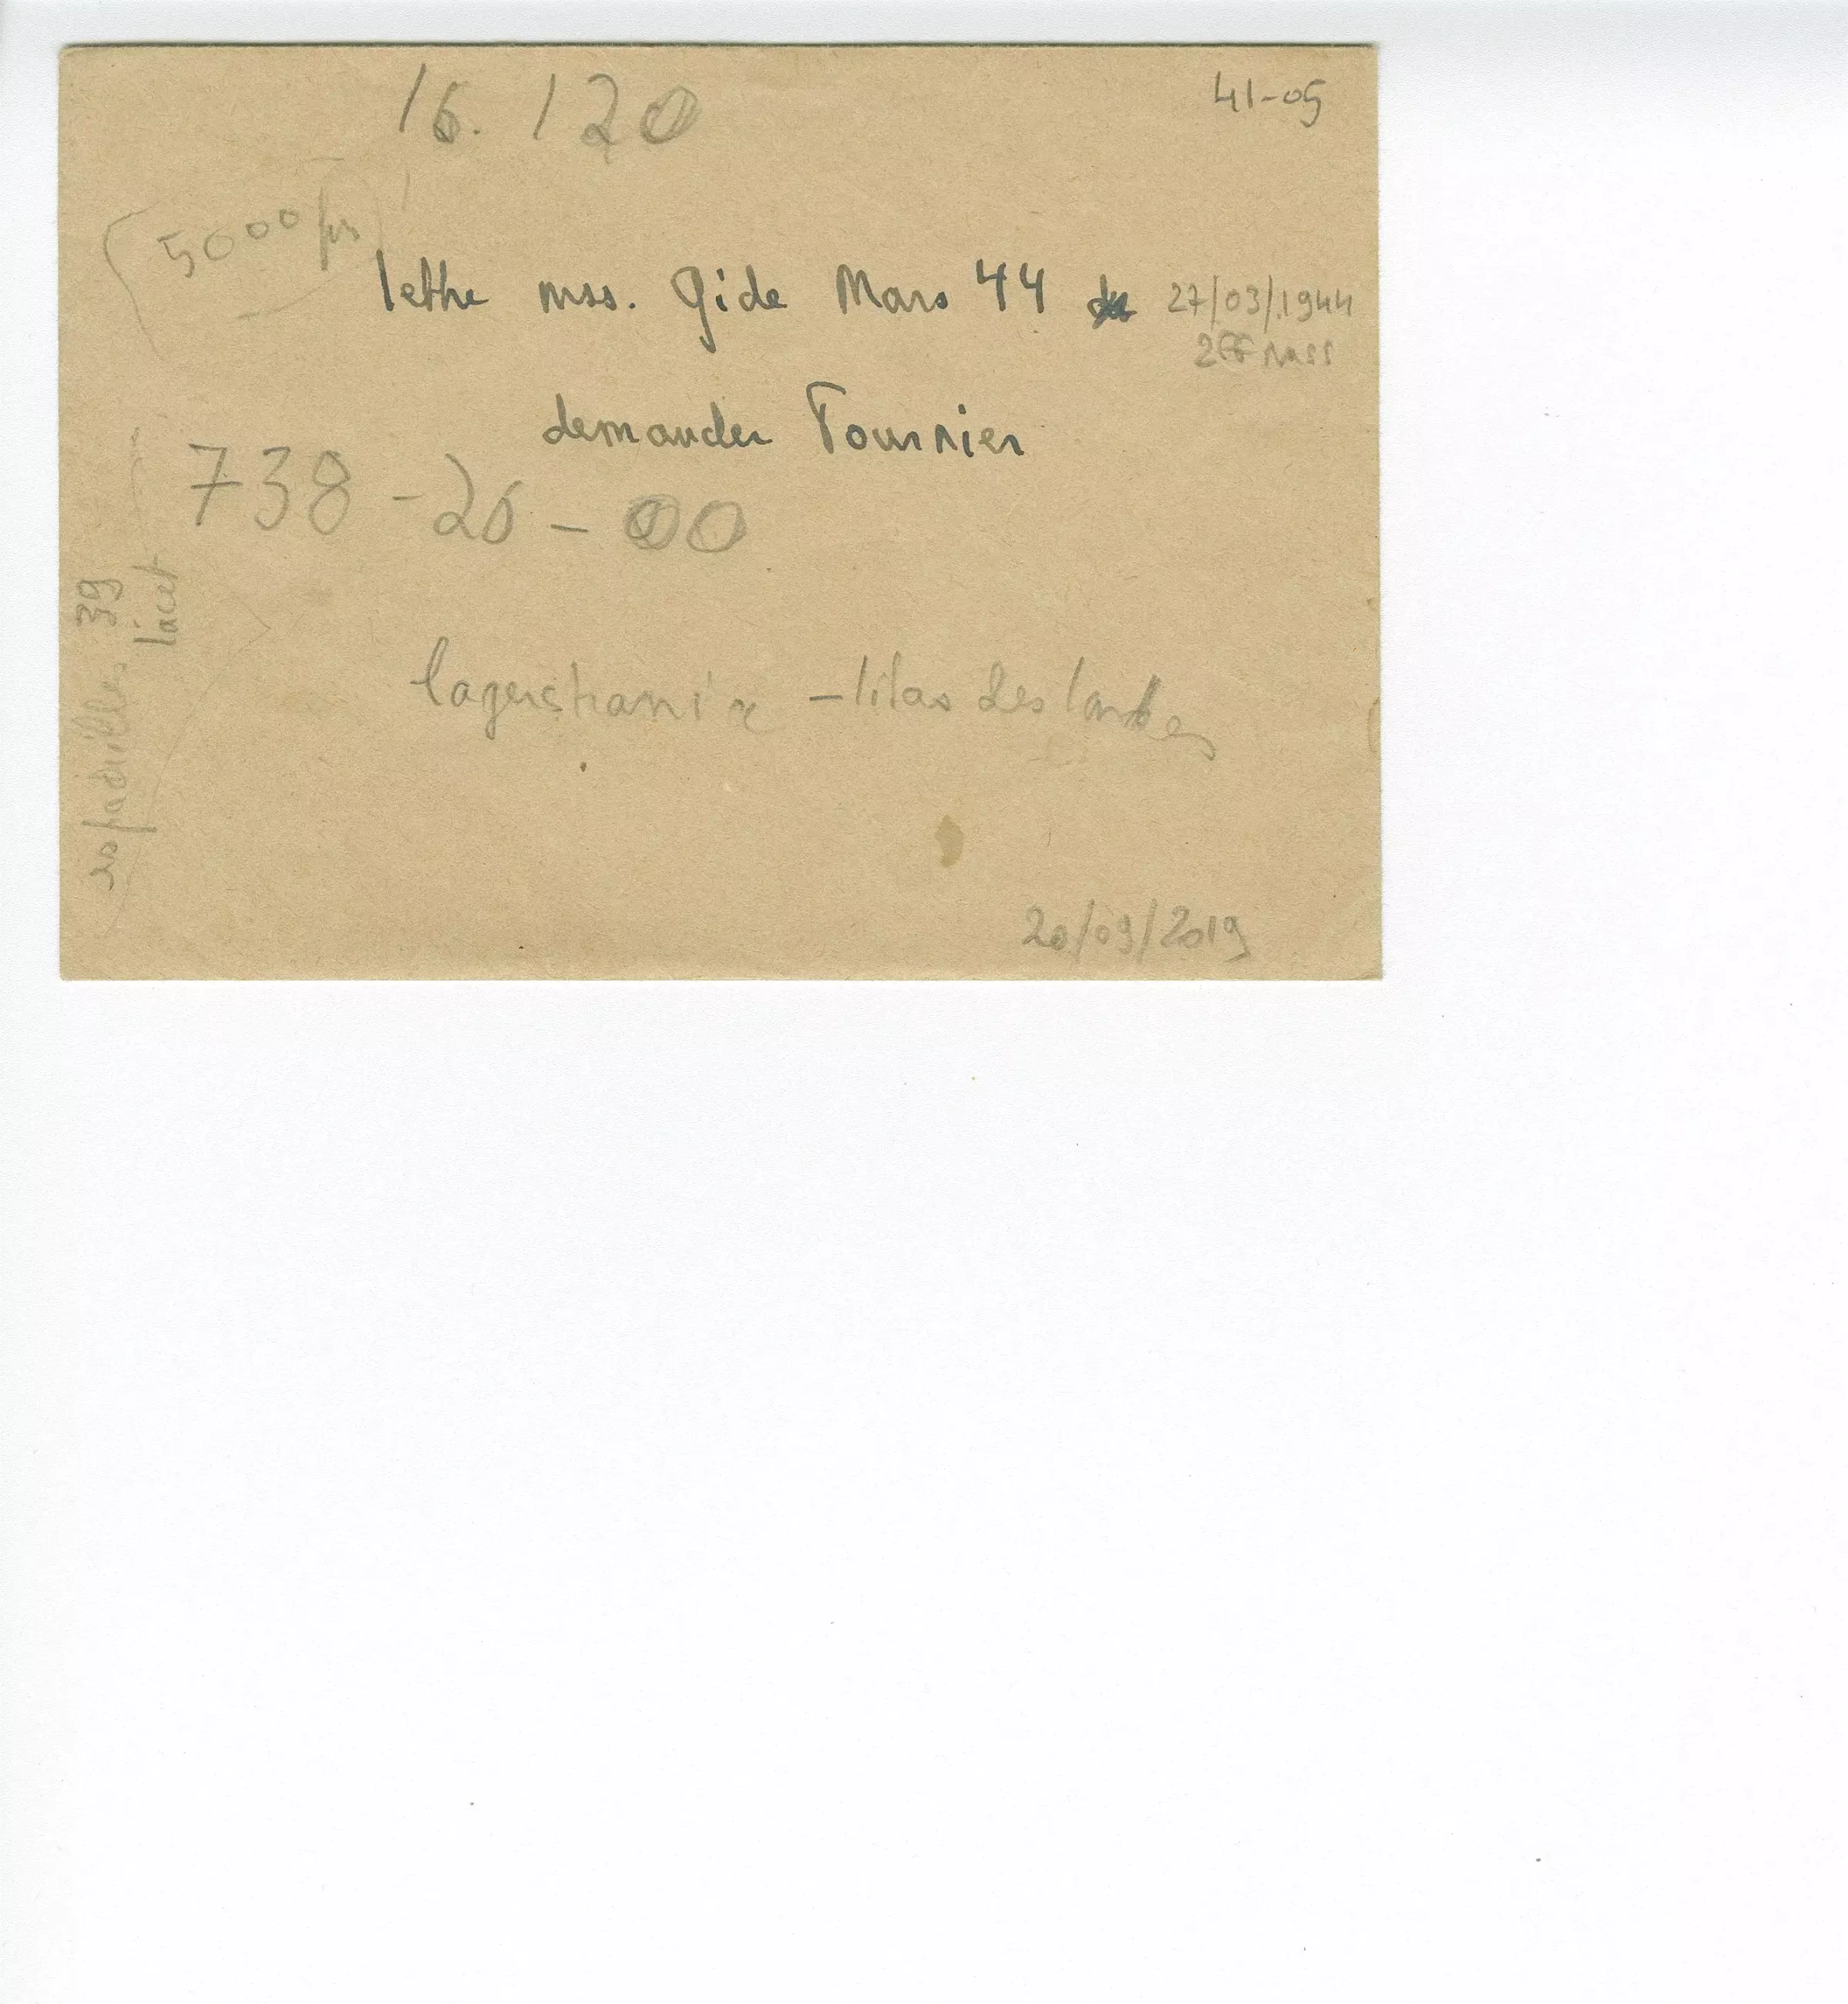 16.120
41-05
5000 frs
lettre mss. Gide Mars 44 27/03/1944
2 ff mss
demander Fournier
738-26-00
espadrilles 39
lacet
lagerstrami - lilas des landes
20/09/2019